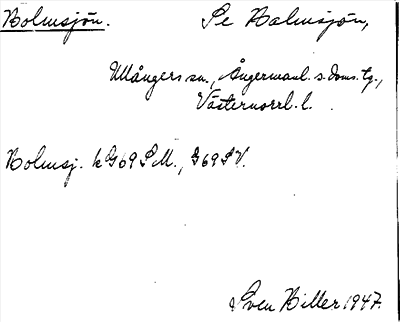 Bolmsjön. Se Balmsjön,
Ullångers sn., Ångermanl. s. doms. tg.,
Västernorrl. l.
Bolmsj. k G69 S M., G69 S V.
Sven Biller 1947.